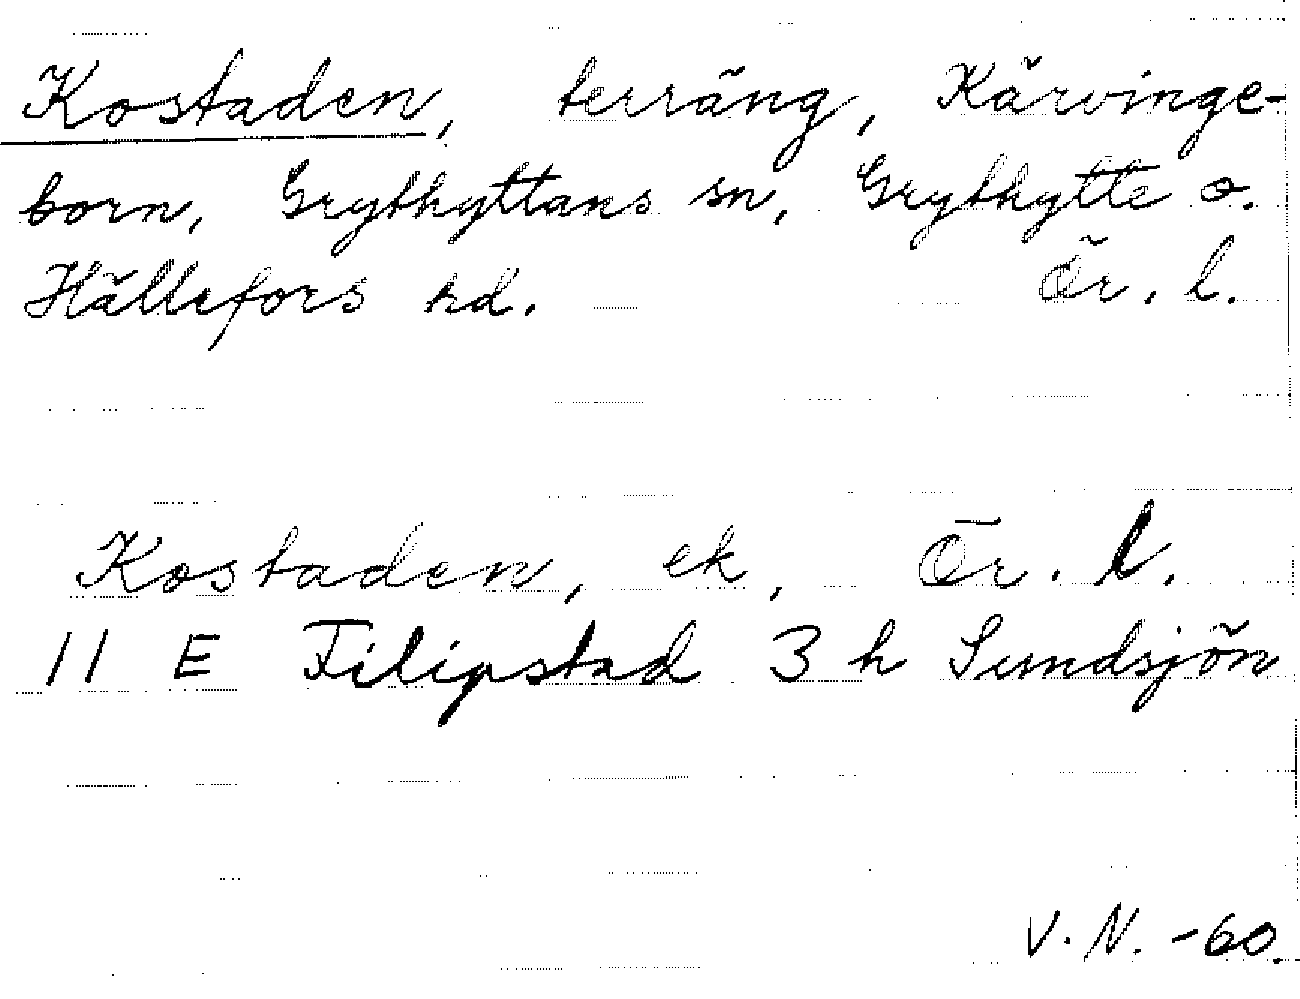 Kostaden, terräng, Kärvinge-
born, Grythyttans sn, Grythytte o.
Hällefors hd. Ör. l.
Kostaden, ek, Ör. l.
11 E Filipstad 3 h Sundsjön
V. N. -60.